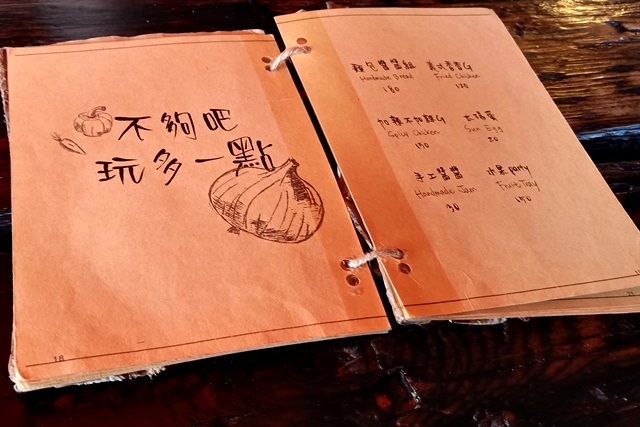 不夠吧
玩多一點
18
麵包醬醬組
Handmade Bread
180
美式香香G
Fried Chicken
120
加辣不加錢G
Spicy Chicken
150
太陽蛋
Sun Egg
20
手工醬醬
Handmade Jam
30
水果party
Fruit Tray
150